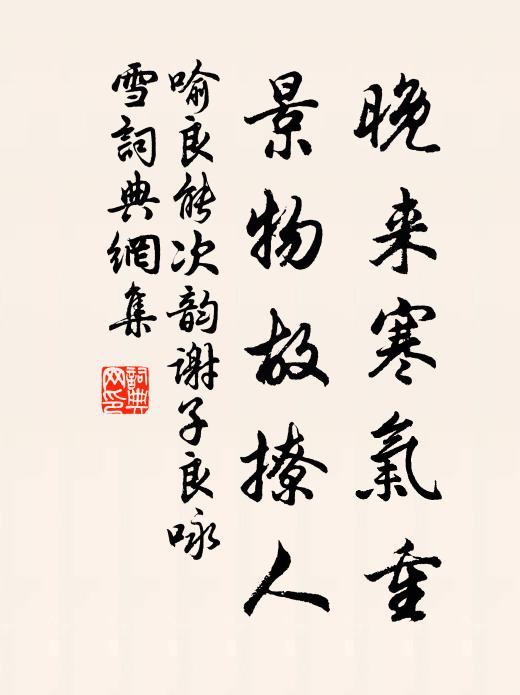 晚来寒氣重
景物故撩人
喻良能次韵謝子良咏
雪詞典網集
詞典網印